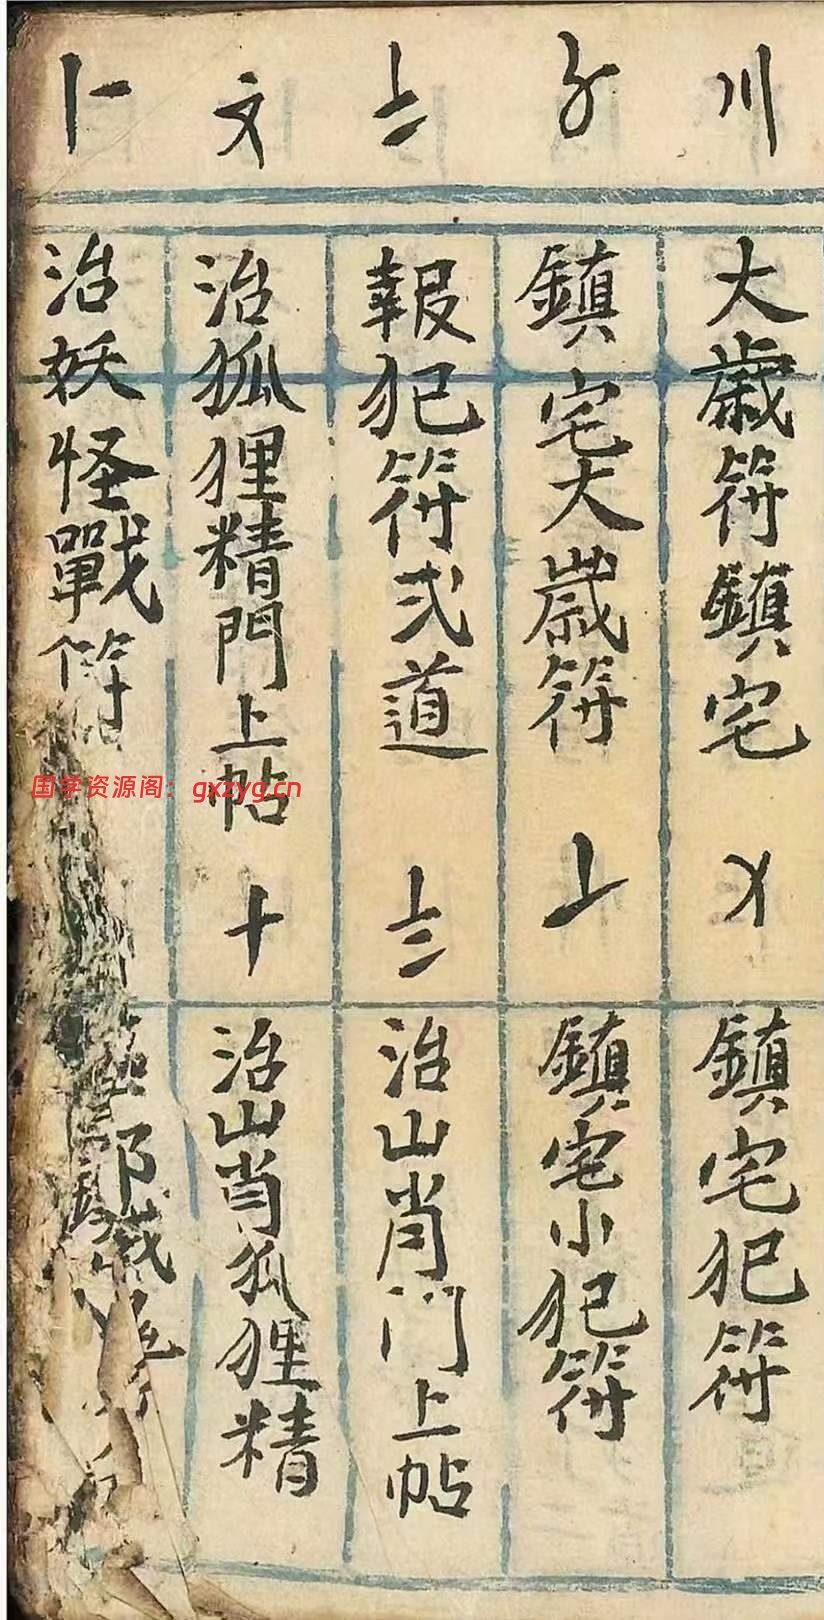 〣
大歲符鎮宅
〤
鎮宅犯符
〥
鎮宅大歲符
〦
鎮宅小犯符
〧
報犯符弍道
〨
治山肖门上帖
〩
治狐狸精門上帖
十
治山肖狐狸精
卜
治妖怪戰符
国学资源阁：gxzyg.cn